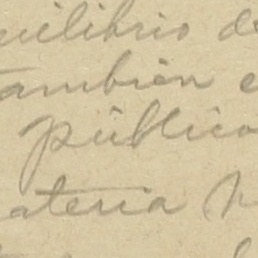 uilibrio de
también e
público
ateria